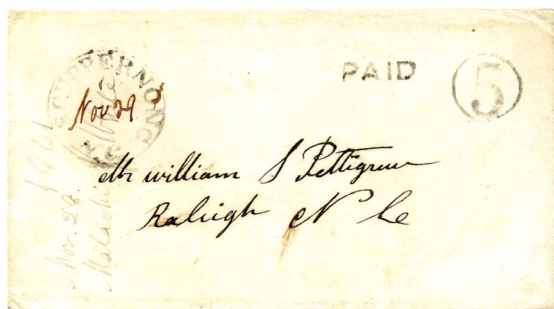 SCUPPERNONG
N.C.
Nov 29
PAID
5
Mr william S Pettigrew
Raleigh N C
Nov. 28 1861
Malachi